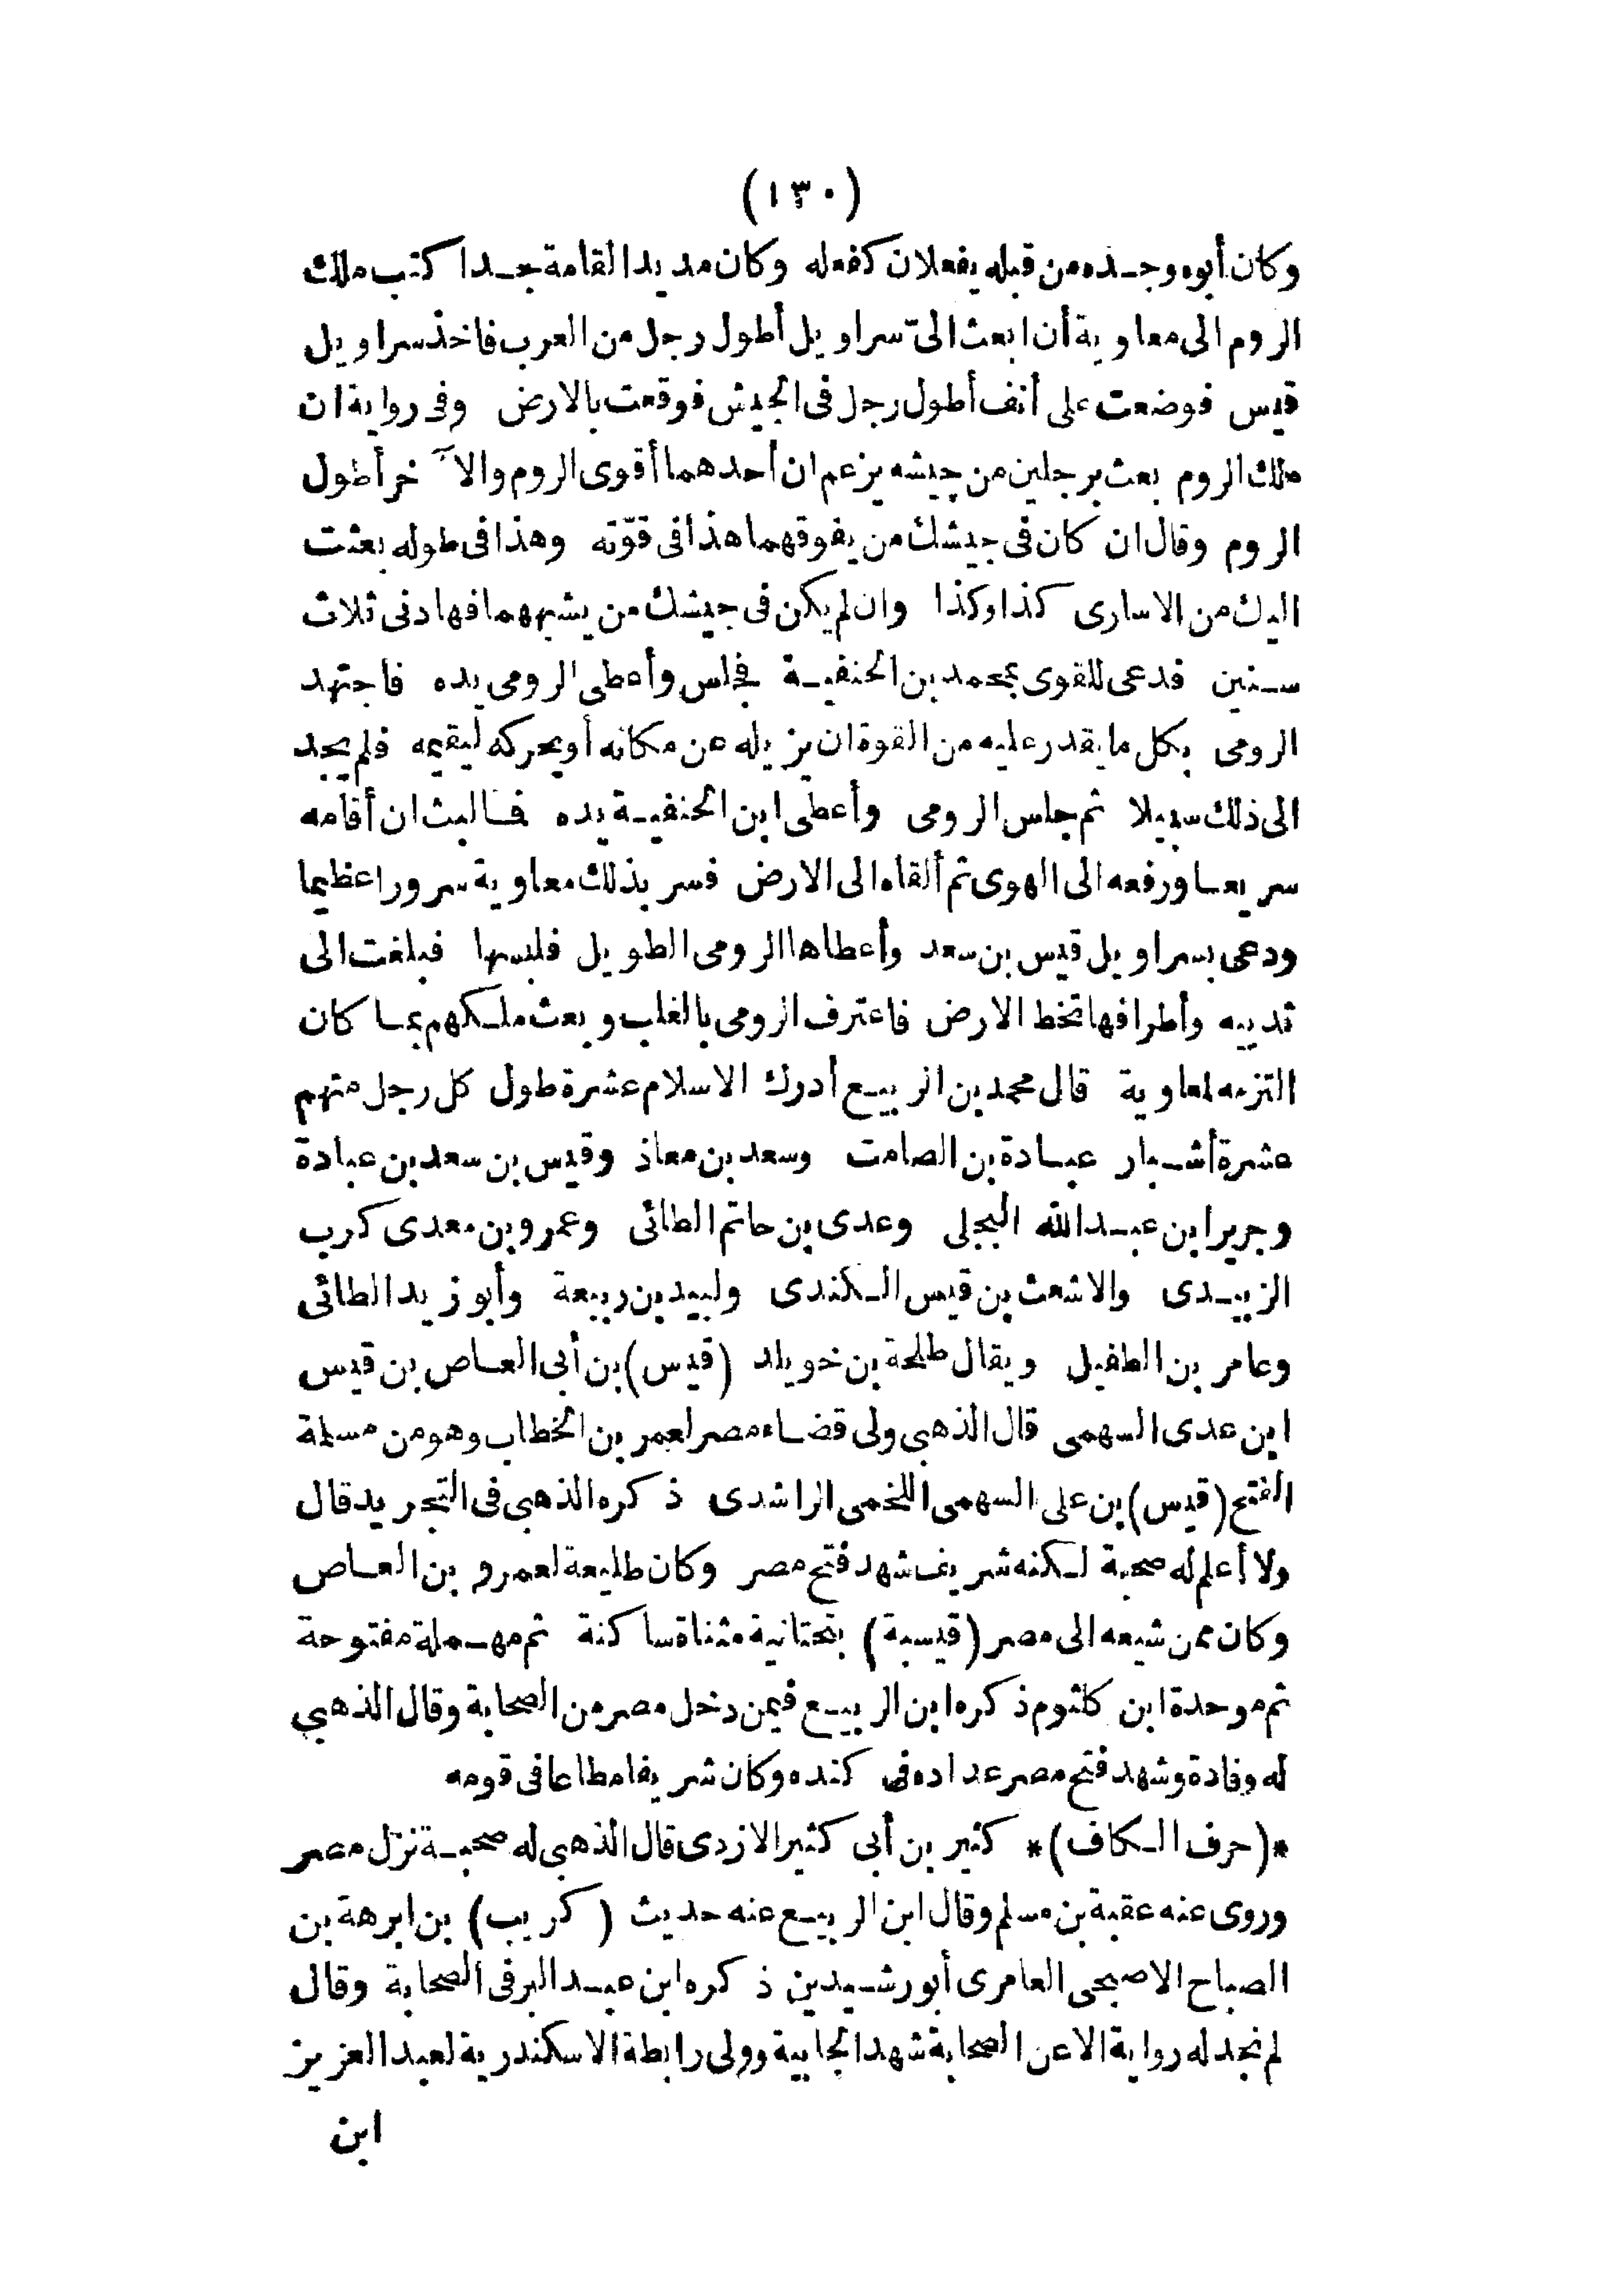 (١٣٠)
وكان أبوه وجده من قبله يفعلان كفعله وكان مديد القامة جدا كتب ملك
الروم الى معاوية أن ابعث الىّ سراويل أطول رجل من العرب فاخذ سراويل
قيس فوضعت على أنف أطول رجل فى الجيش فوقعت بالارض وفى رواية ان
ملك الروم بعث برجلين من جيشه يزعم ان أحدهما أقوى الروم والآخر أطول
الروم وقال ان كان فى جيشك من يفوقهما هذا فى قوّته وهذا فى طوله بعثت
اليك من الاسارى كذا وكذا وان لم يكن فى جيشك من يشبههما فهادنى ثلاث
سنين فدعى للقوى بمحمد بن الحنفية فجلس وأعطى الرومى يده فاجتهد
الرومى بكل ما يقدر عليه من القوة ان يزيله عن مكانه أو يحركه ليقيمه فلم يجد
الى ذلك سبيلا ثم جلس الرومى وأعطى ابن الحنفية يده فما لبث ان أقامه
سريعا ورفعه الى الهوى ثم ألقاه الى الارض فسر بذلك معاوية سرورا عظيما
ودعى بسراويل قيس بن سعد وأعطاها الرومى الطويل فلبسها فبلغت الى
ثدييه وأطرافها تخط الارض فاعترف الرومى بالغلب وبعث ملكهم بما كان
التزمه لمعاوية قال محمد بن الربيع أدرك الاسلام عشرة طول كل رجل منهم
عشرة أشبار عبادة بن الصامت وسعد بن معاذ وقيس بن سعد بن عبادة
وجرير ابن عبد الله البجلى وعدى بن حاتم الطائى وعمرو بن معدى كرب
الزبيدى والاشعث بن قيس الكندى ولبيد بن ربيعة وأبو زيد الطائى
وعامر بن الطفيل ويقال طلحة بن خويلد (قيس) بن أبى العاص بن قيس
ابن عدى السهمى قال الذهبى ولى قضاء مصر لعمر بن الخطاب وهو من مسلمة
الفتح (قيس) بن على السهمى اللخمى الراشدى ذكره الذهبى فى التجريد قال
ولا أعلم له صحبة لكنه شريف شهد فتح مصر وكان طليعة لعمرو بن العاص
وكان ممن شيعه الى مصر (قيسبة) بتحتانية مثناة ساكنة ثم مهملة مفتوحة
ثم موحدة ابن كلثوم ذكره ابن الربيع فيمن دخل مصر من الصحابة وقال الذهبى
له وفادة وشهد فتح مصر عداده فى كنده وكان شريفا مطاعا فى قومه
*(حرف الكاف)* كثير بن أبى كثير الازدى قال الذهبى له صحبة نزل مصر
وروى عنه عقبة بن مسلم وقال ابن الربيع عنه حديث (كريب) بن ابرهة بن
الصباح الاصبحى العامرى أبو رشيدين ذكره ابن عبد البر فى الصحابة وقال
لم نجد له رواية الا عن الصحابة شهد الجابية وولى رابطة الاسكندرية لعبد العزيز
ابن